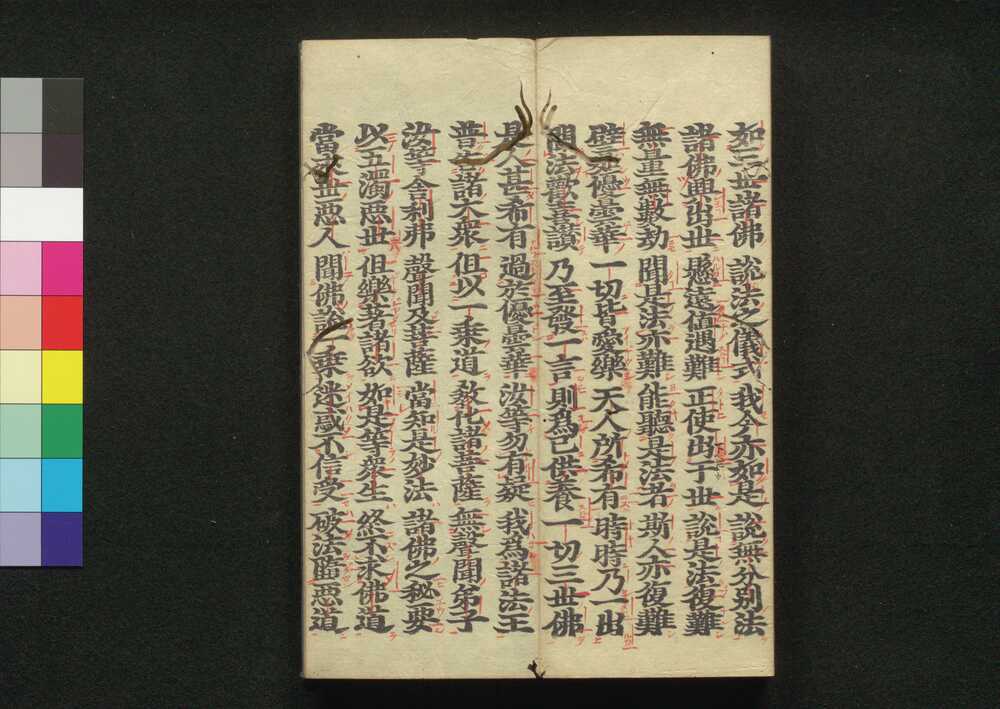 如三世諸佛 說法之儀式 我今亦如是 說無分別法
諸佛興出世 懸遠値遇難 正使出于世 說是法復難
無量無數劫 聞是法亦難 能聽是法者 斯人亦復難
譬如優曇華 一切皆愛樂 天人所希有 時時乃一出
聞法歡喜讚 乃至發一言 則爲已供養 一切三世佛
是人甚希有 過於優曇華 汝等勿有疑 我爲諸法王
普告諸大衆 但以一乘道 敎化諸菩薩 無聲聞弟子
汝等舍利弗 聲聞及菩薩 當知是妙法 諸佛之秘要
以五濁惡世 但樂著諸欲 如是等衆生 終不求佛道
當來世惡人 聞佛說一乘 迷惑不信受 破法墮惡道